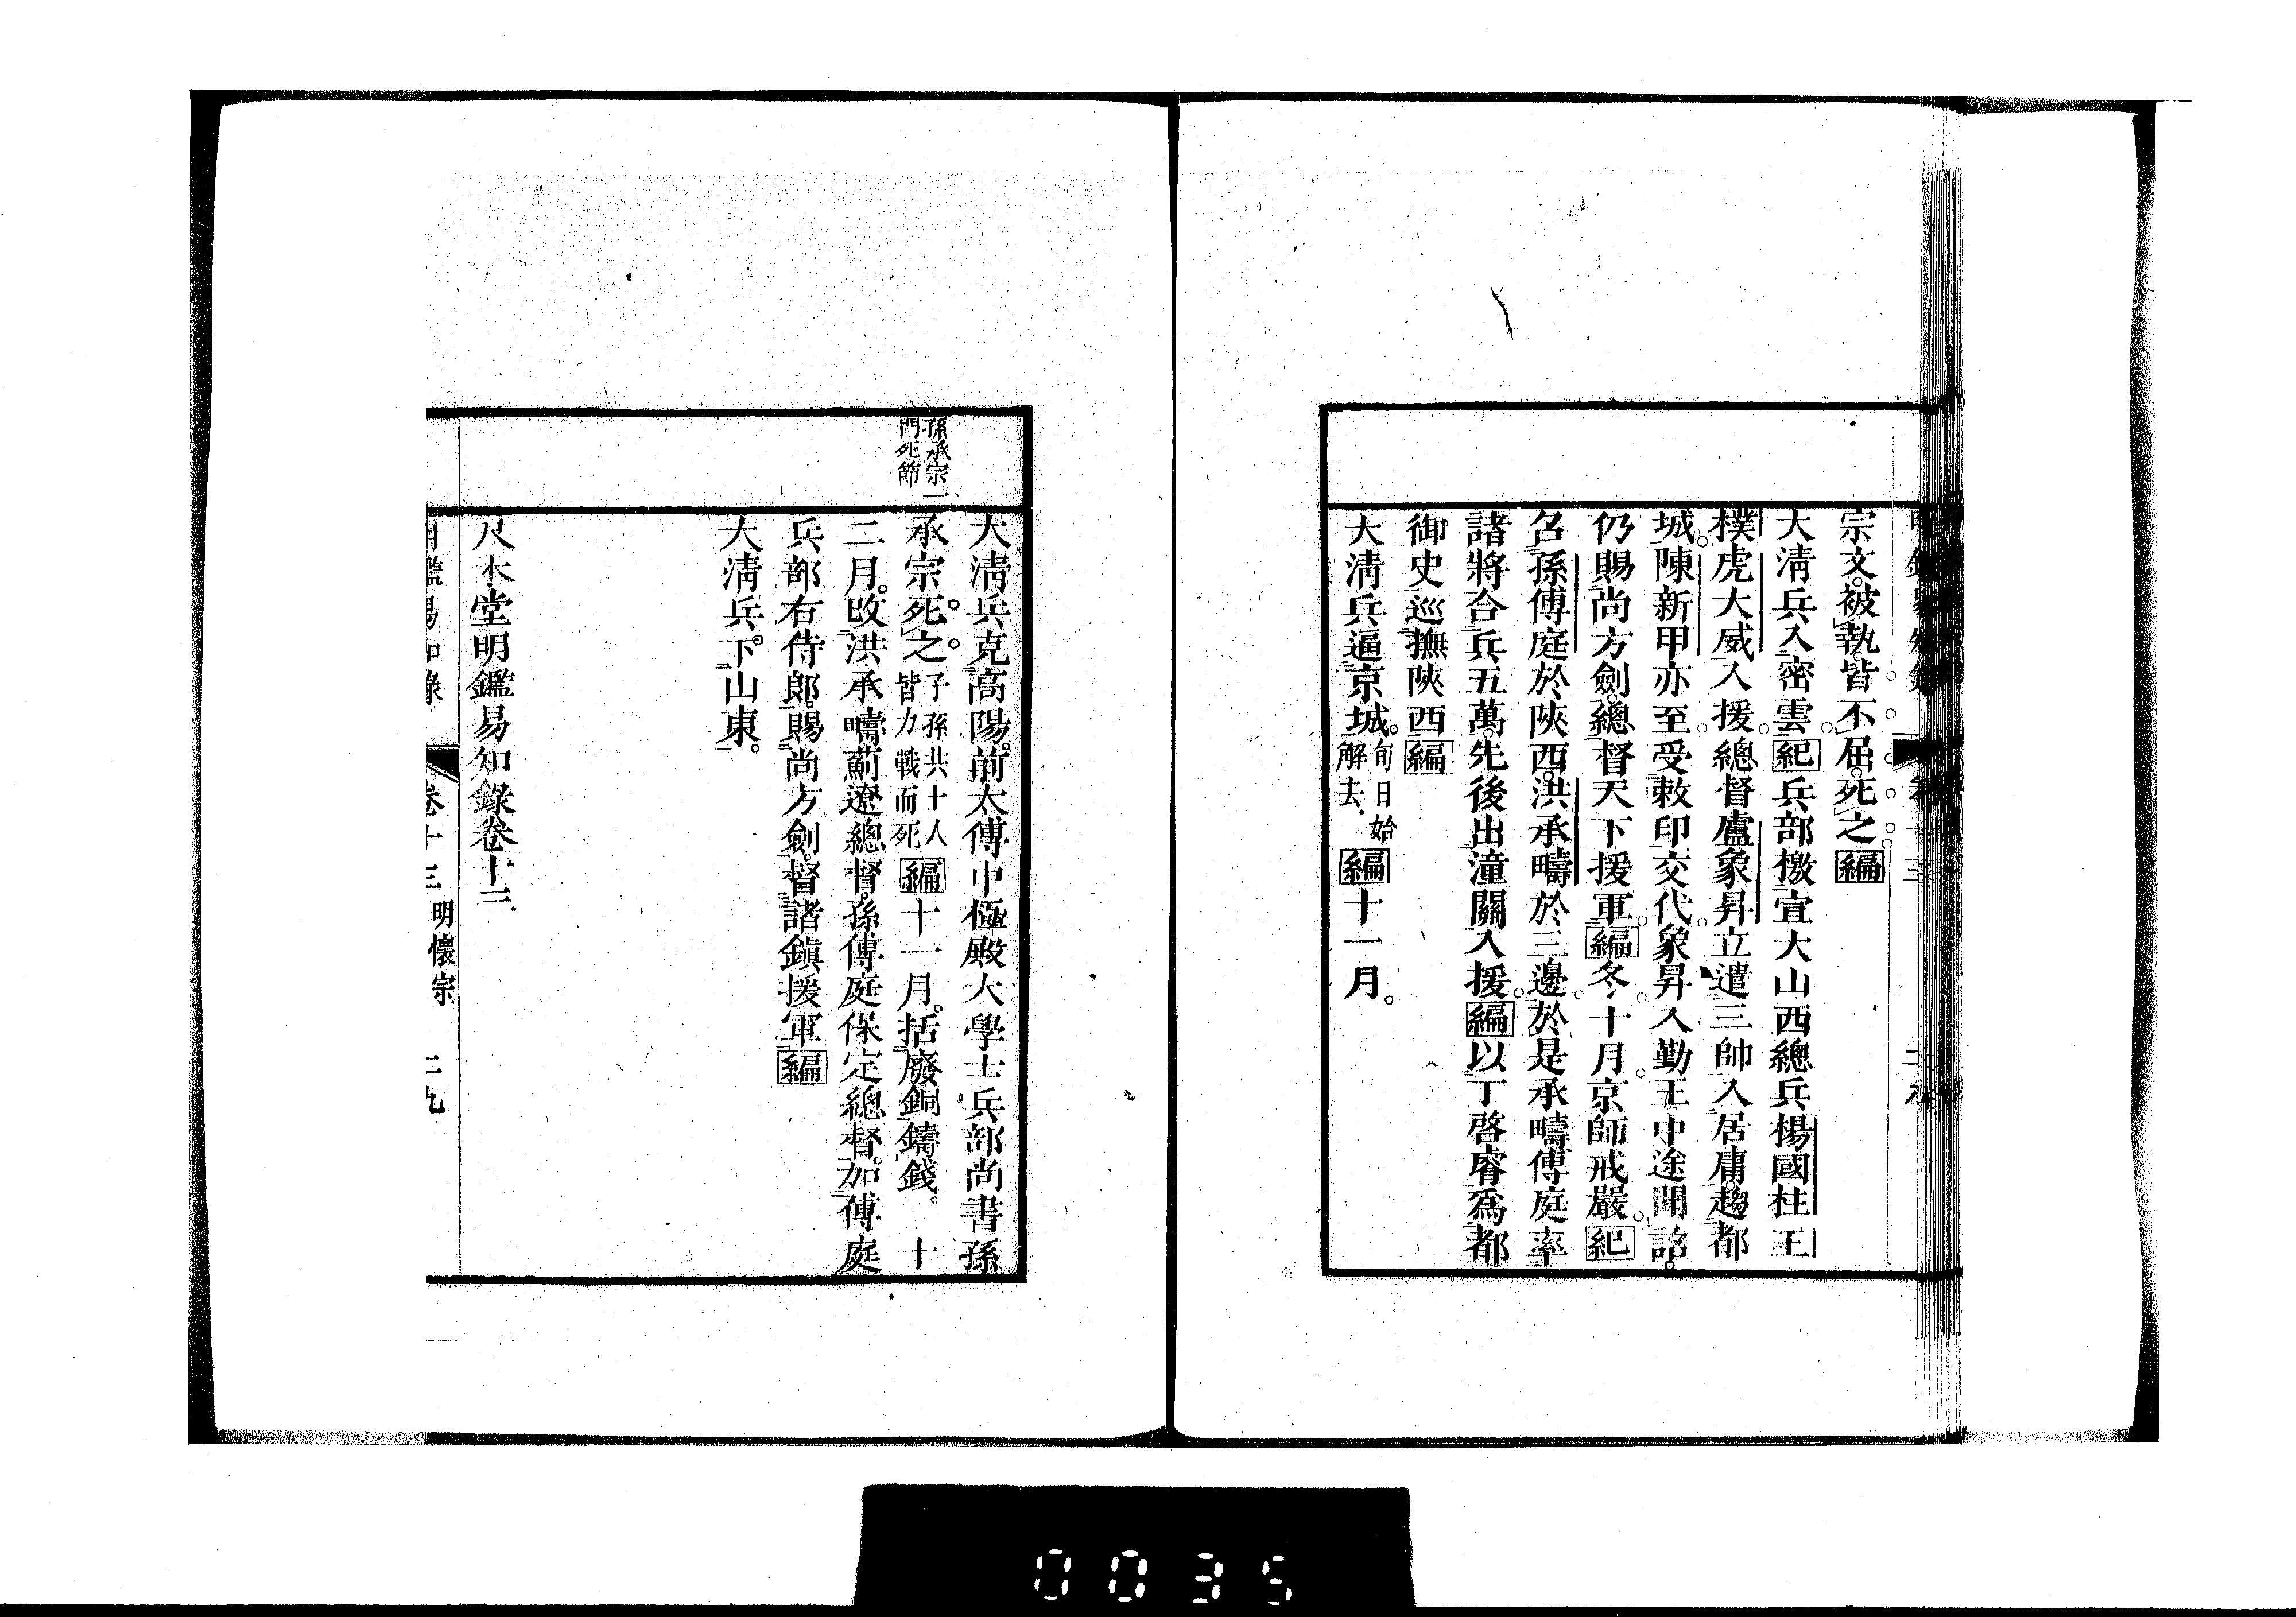 宗文。被執。皆不屈。死之。編
大淸兵入密雲。紀兵部檄宣大山西總兵楊國柱王
樸虎大威入援。總督盧象昇立遣三帥入居庸。趨都
城。陳新甲亦至受敕印交代。象昇入勤王中途聞詔。
仍賜尚方劍。總督天下援軍。編冬十月京師戒嚴。紀
召孫傅庭於陝西。洪承疇於三邊。於是承疇傅庭率
諸將合兵五萬。先後出潼關入援。編以丁啓睿爲都
御史巡撫陝西編
大淸兵逼京城。旬日始解去。編十一月。
孫承宗一門死節
大淸兵克高陽。前太傅中極殿大學士兵部尚書孫
承宗死之。子孫共十人皆力戰而死編十一月。括廢銅鑄錢。十
二月。改洪承疇薊遼總督。孫傅庭保定總督。加傅庭
兵部右侍郎。賜尚方劍。督諸鎭援軍編
大淸兵下山東。
尺木堂明鑑易知錄卷十三
明鑑易知錄 卷十三 明懷宗 二九
0035